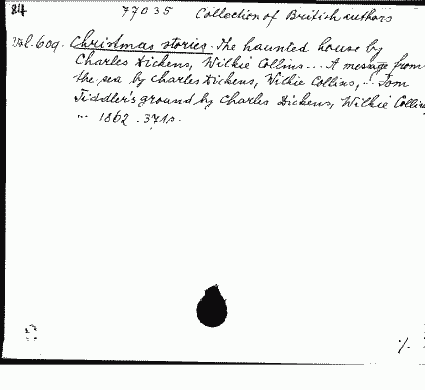 84 77035 Collection of British authors
Vol. 609. Christmas stories. The haunted house by
Charles Dickens, Wilkie Collins... A message from
the sea by Charles Dickens, Wilkie Collins, ... Tom
Tiddler's ground by Charles Dickens, Wilkie Collins
... 1862. 371 s.
./.